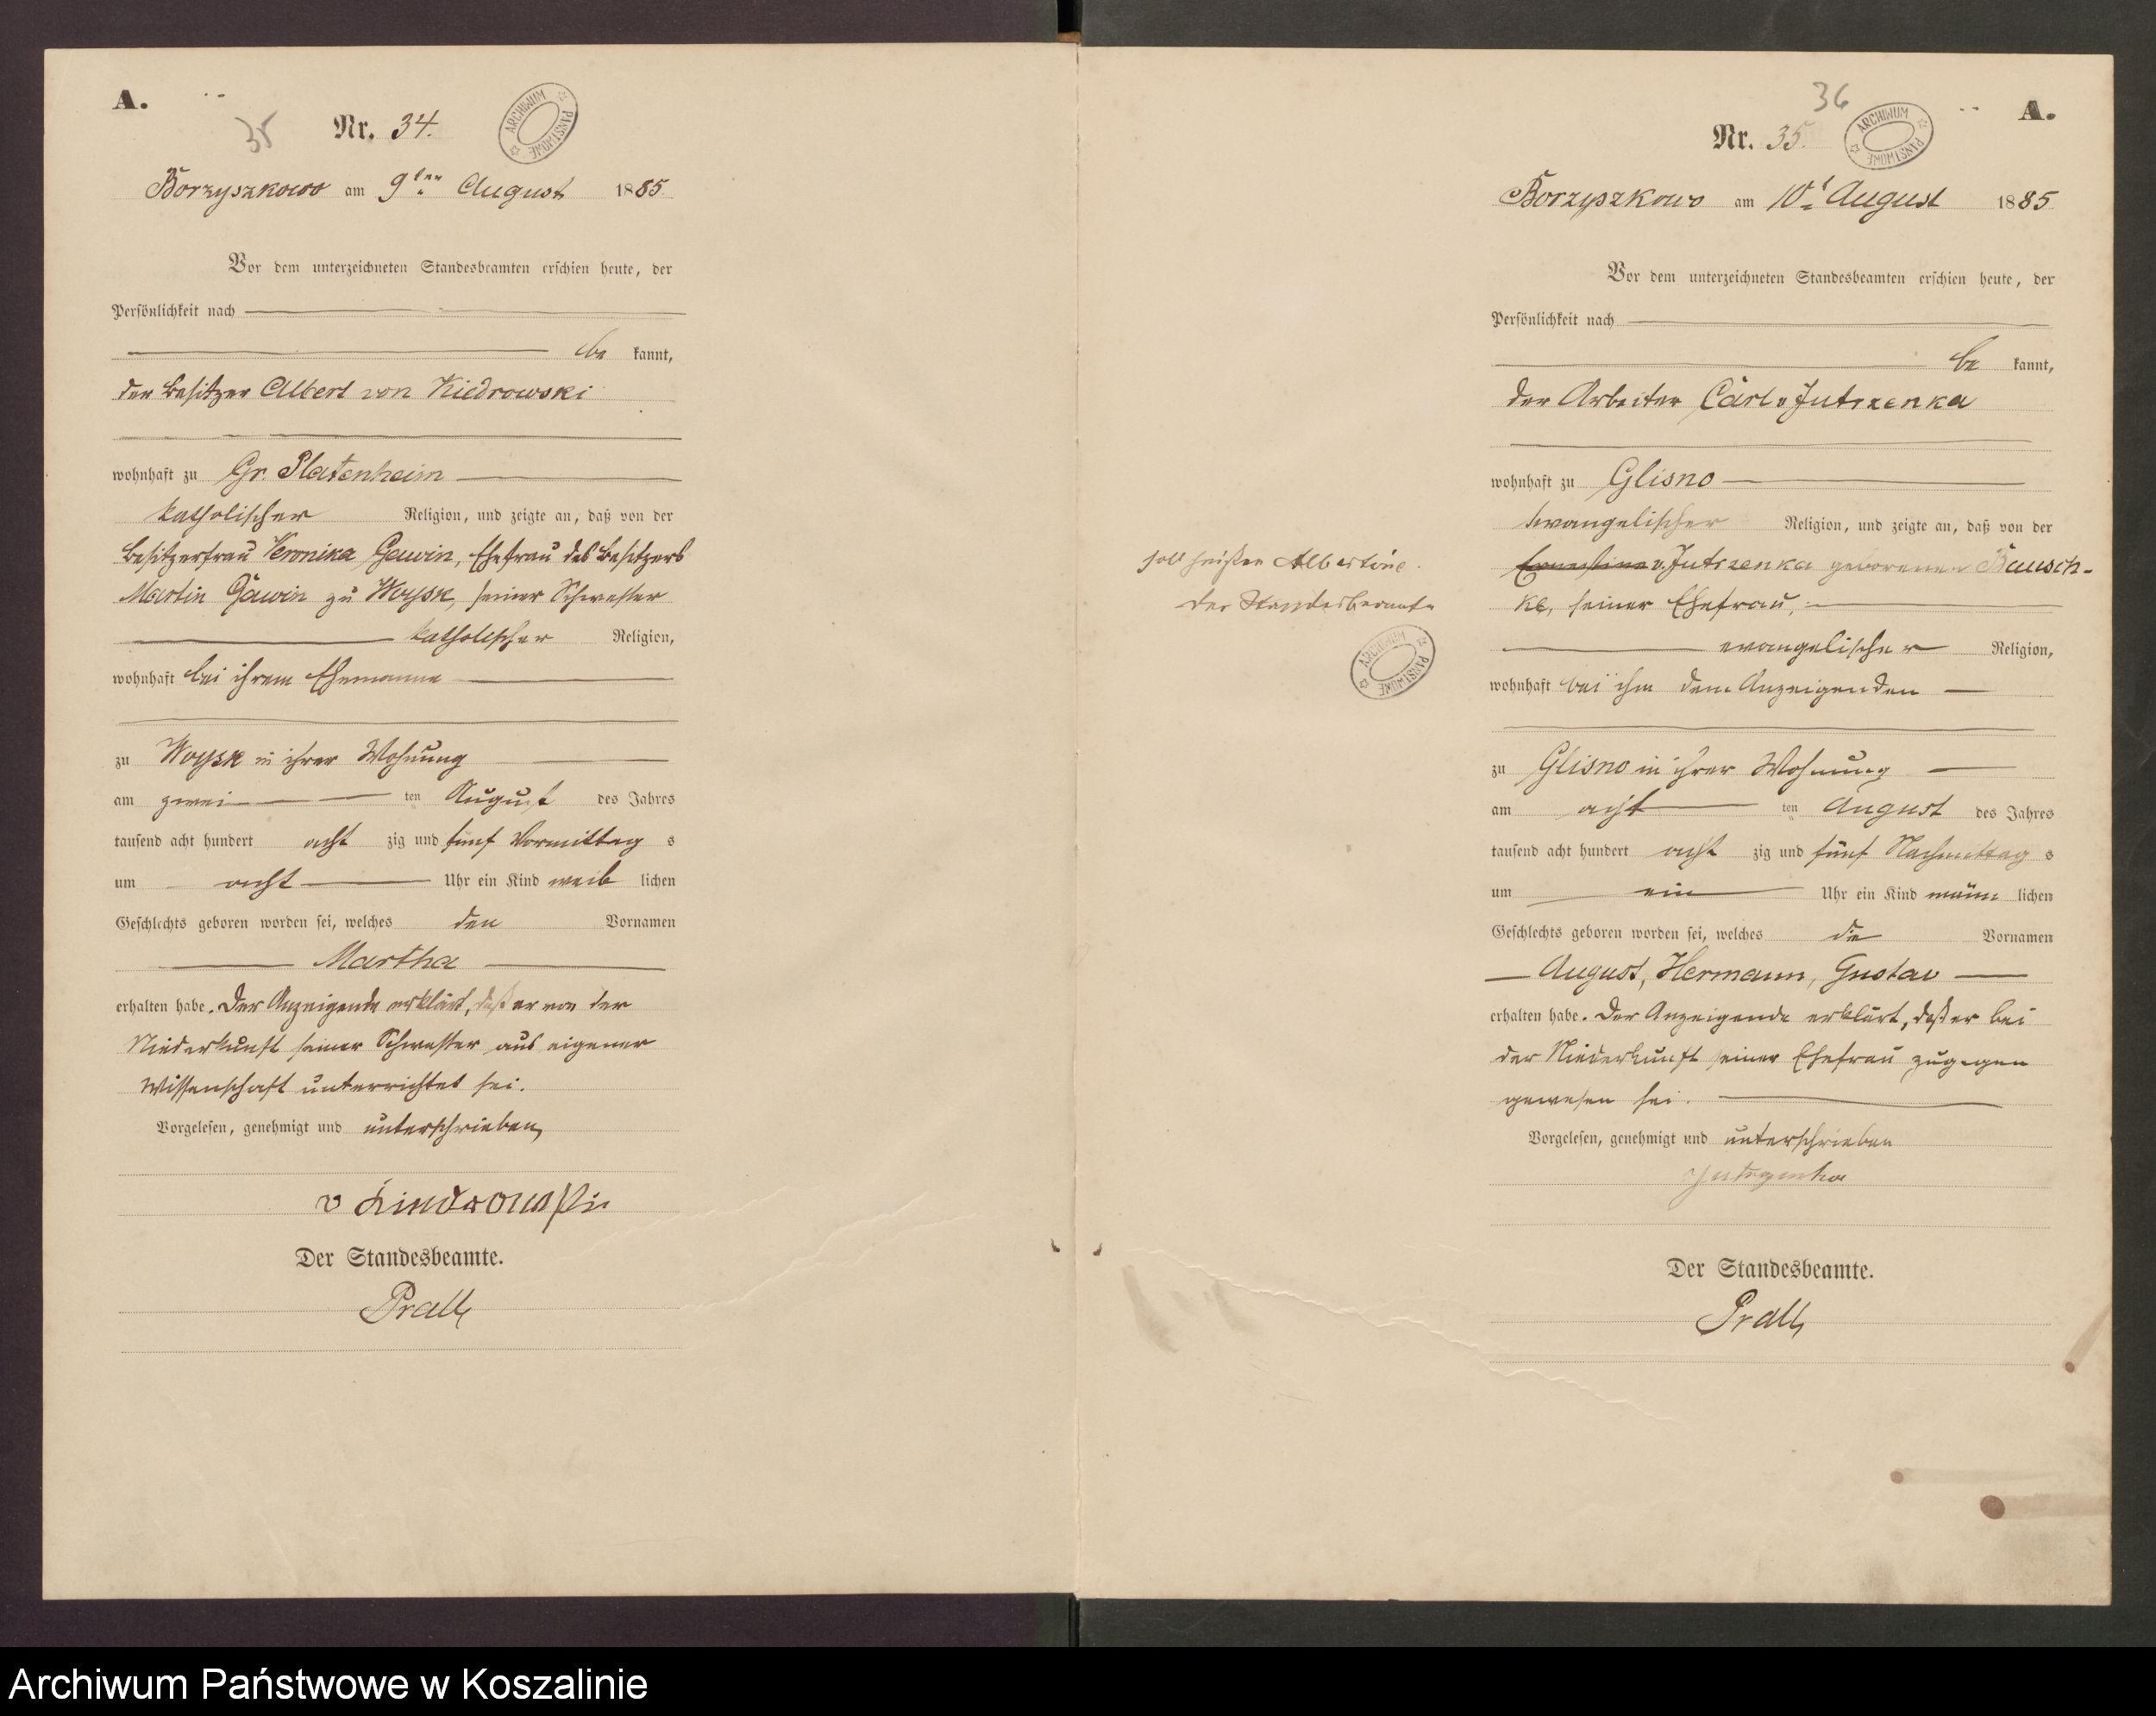 A.
35
Nr. 34.
ARCHIWUM PAŃSTWOWE
Borzyszkowo am 9ten August 1885.
Vor dem unterzeichneten Standesbeamten erschien heute, der
Persönlichkeit nach
be kannt,
der Besitzer Albert von Kiedrowski
wohnhaft zu Gr. Platenheim
katholischer Religion, und zeigte an, daß von der
Besitzerfrau Veronika Gawin, Ehefrau des Besitzers
Martin Gawin zu Woysk, seiner Schwester
katholischer Religion,
wohnhaft bei ihrem Ehemanne
zu Woysk in ihrer Wohnung
am zwei ten August des Jahres
tausend acht hundert acht zig und fünf Vormittag s
um acht Uhr ein Kind weib lichen
Geschlechts geboren worden sei, welches den Vornamen
Martha
erhalten habe. Der Anzeigende erklärt, daß er von der
Niederkunft seiner Schwester aus eigener
Wissenschaft unterrichtet sei.
Vorgelesen, genehmigt und unterschrieben
v Kiedrowski
Der Standesbeamte.
Prall
36
A.
Nr. 35.
ARCHIWUM PAŃSTWOWE
Borzyszkowo am 10t August 1885
Vor dem unterzeichneten Standesbeamten erschien heute, der
Persönlichkeit nach
be kannt,
der Arbeiter Carl v Jutrzenka
wohnhaft zu Glisno
evangelischer Religion, und zeigte an, daß von der
Ernestine v. Jutrzenka geborenen Bausch-
ke, seiner Ehefrau,
evangelischer Religion,
wohnhaft bei ihm dem Anzeigenden
zu Glisno in ihrer Wohnung
am acht ten August des Jahres
tausend acht hundert acht zig und fünf Nachmittag s
um ein Uhr ein Kind männ lichen
Geschlechts geboren worden sei, welches die Vornamen
August, Hermann, Gustav
erhalten habe. Der Anzeigende erklärt, daß er bei
der Niederkunft seiner Ehefrau zugegen
gewesen sei.
Vorgelesen, genehmigt und unterschrieben
Jutrzenka
Der Standesbeamte.
Prall
soll heißen Albertine.
Der Standesbeamte
ARCHIWUM PAŃSTWOWE
Archiwum Państwowe w Koszalinie